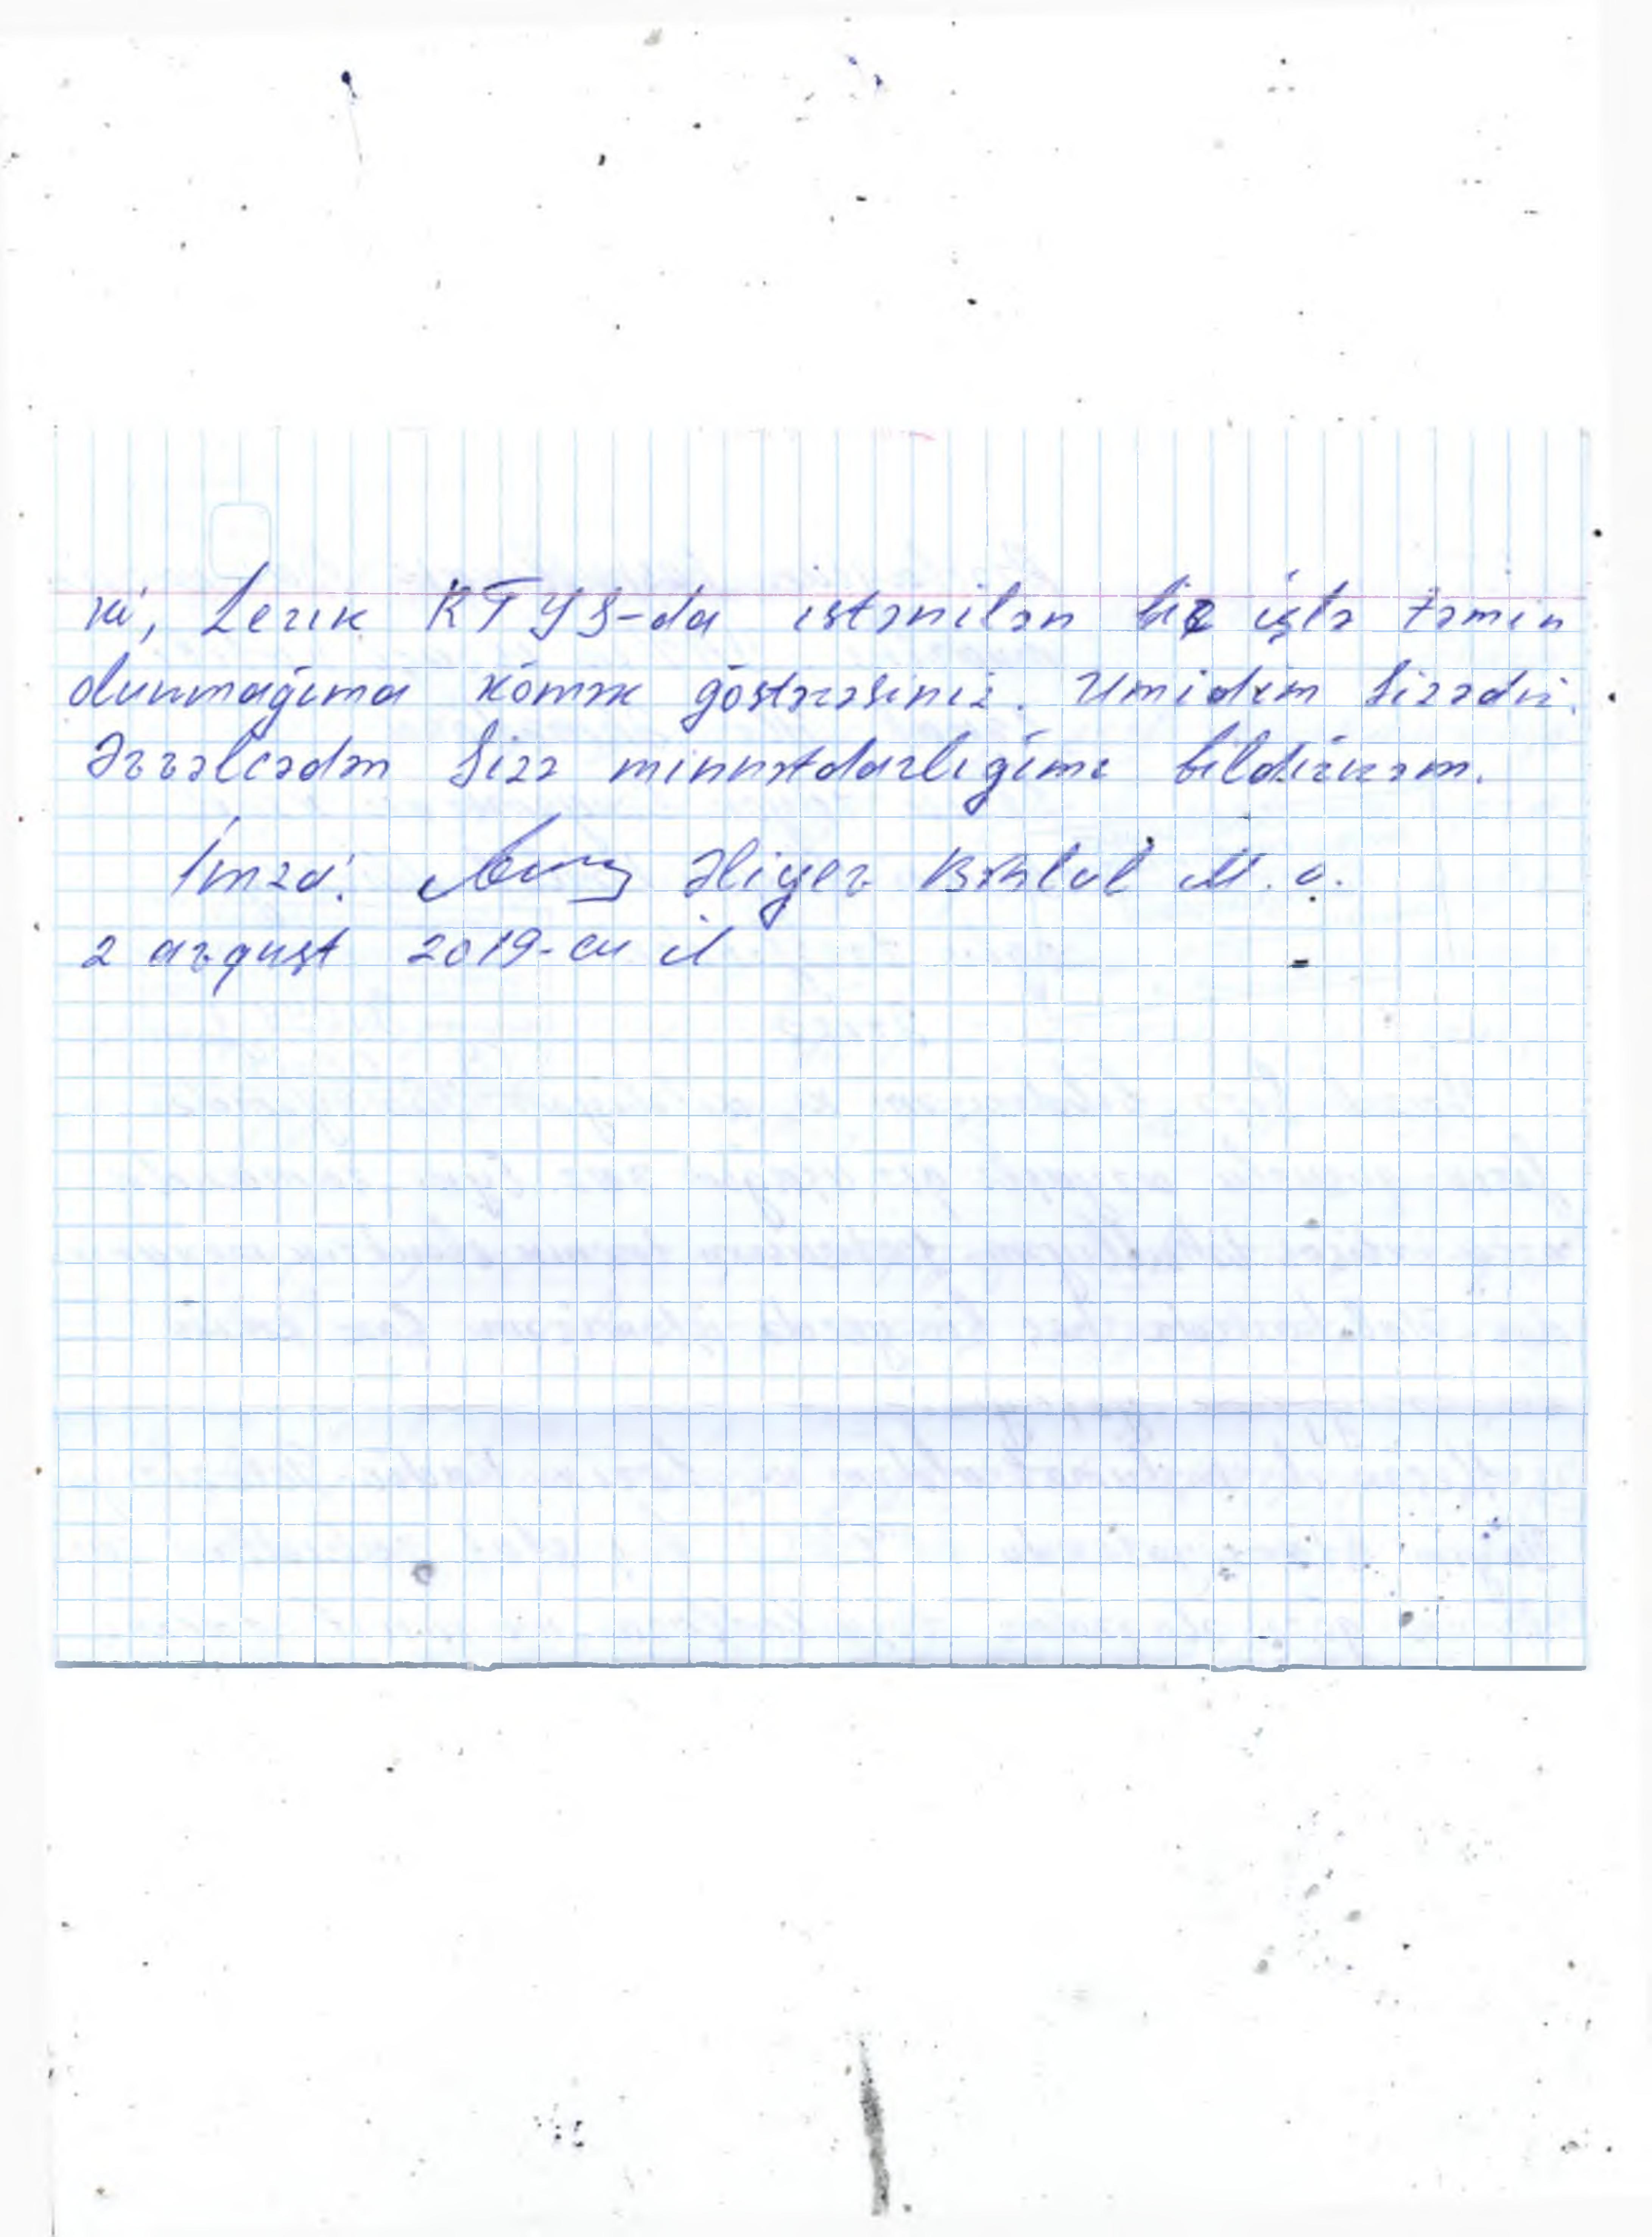 ki, Lerik RTYS-da istənilən bir işlə təmin
olunmağıma kömək göstərəsiniz. Ümidim Sizədir.
Əvvəlcədən Sizə minnətdarlığımı bildirirəm.
İmza: Əliyev Bəhlul M. o.
2 avqust 2019-cu il